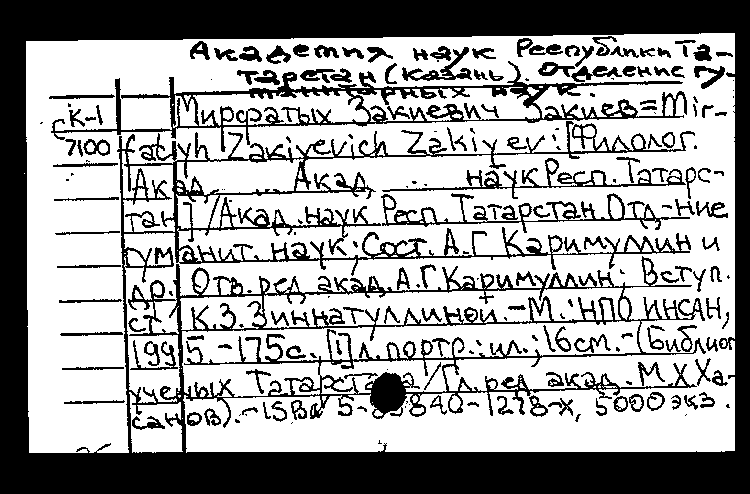 Академия наук Республики Та-
тарстан (Казань). Отделение гу-
манитарных наук
К-1 Мирфатых Закиевич Закиев = Mir-
7100 fatiyh Zakiyevich Zakiyev : [Филолог.
Акад. ... Акад. ... наук Респ. Татарс-
тан] / Акад. наук Респ. Татарстан. Отд-ние
гуманит. наук; Сост. А.Г. Каримуллин и
др.; Отв. ред. акад. А.Г. Каримуллин; Вступ.
ст. К.З. Зиннатуллиной. - М. : НПО ИНСАН,
1995. - 175с., [1]л. портр. : ил.; 16см. - (Библиог
ученых Татарстана / Гл. ред. акад. М.Х Ха-
санов). - ISBN 5- 840-1278-х, 5000 экз.